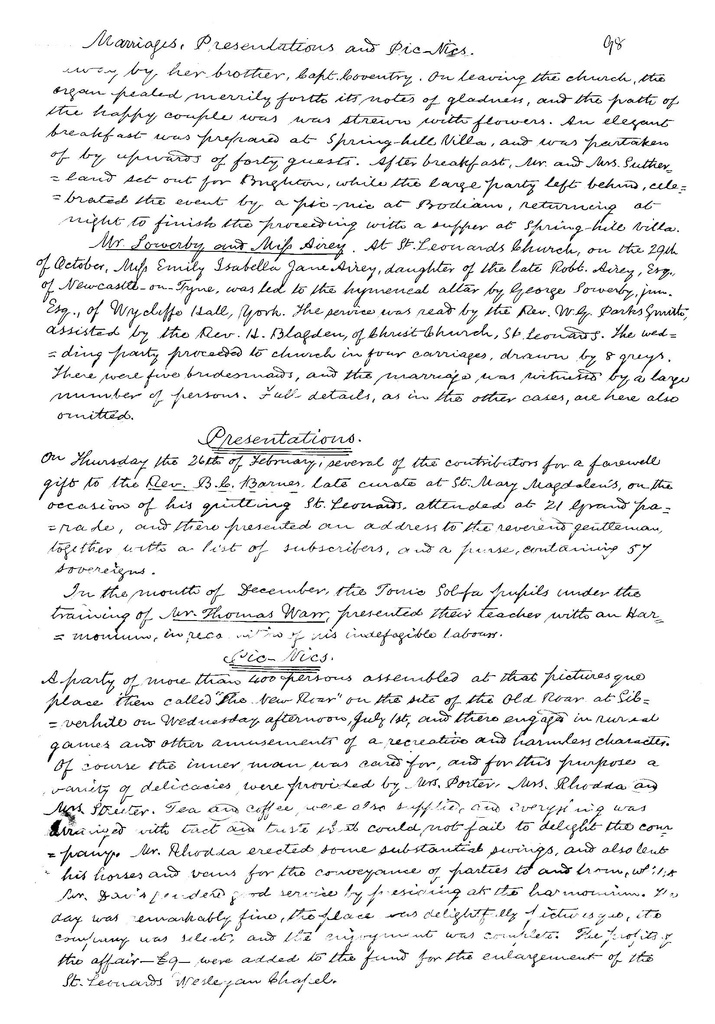 Marriages, Presentations and Pic-Nics. 98
away by her brother, Capt. Coventry. On leaving the church, the
organ pealed merrily forth its notes of gladness, and the path of
the happy couple was was strewn with flowers. An elegant
breakfast was prepared at Spring-hill Villa, and was partaken
of by upwards of forty guests. After breakfast, Mr. and Mrs. Suther=
=land set out for Brighton, while the large party left behind, cele=
=brated the event by a pic-nic at Bodiam, returning at
night to finish the proceeding with a supper at Spring-hill Villa.
Mr. Sowerby and Miss Airey. At St. Leonards Church, on the 29th
of October, Miss Emily Isabella Jane Airey, daughter of the late Robt. Airey, Esq.,
of Newcastle-on-Tyne, was led to the hymeneal altar by George Sowerby, jun.
Esq., of Wycliffe Hall, York. The service was read by the Rev. W. G. Parks Smith,
assisted by the Rev. H. Blagden, of Christ Church, St. Leonards. The wed=
=ding party proceeded to church in four carriages, drawn by 8 greys.
There were five bridesmaids, and the marriage was witnessed by a large
number of persons. Full details, as in the other cases, are here also
omitted.
Presentations.
On Thursday the 26th of February, several of the contributors for a farewell
gift to the Rev. B. C. Barnes, late curate at St. Mary Magdalen's, on the
occasion of his quitting St. Leonards, attended at 21 Grand pa=
=rade, and there presented an address to the reverend gentleman,
together with a list of subscribers, and a purse, containing 57
sovereigns.
In the month of December, the Tonic Sol-fa pupils under the
training of Mr. Thomas Warr, presented their teacher with an Har=
=monium, in of his indefagible labour.
Pic-Nics.
A party of more than 400 persons assembled at that picturesque
place then called "The New Roar" on the site of the Old Roar at Sil=
=verhill on Wednesday afternoon, July 1st, and there engaged in rural
games and other amusements of a recreative and harmless character.
Of course the inner man was cared for, and for this purpose a
variety of delicacies were provided by Mrs. Porter, Mrs. Rhodda and
Mrs. Streeter. Tea and coffee were also supplied, and everything was
arranged with tact and taste as it could not fail to delight the com=
=pany. Mr. Rhodda erected some substantial swings, and also lent
his horses and vans for the conveyance of parties to and from, whilst
Mr. Davis rendered good service by presiding at the harmonium. The
day was remarkably fine, the place was delightfully picturesque, the
company was select, and the enjoyment was complete. The profits of
the affair — £9 — were added to the fund for the enlargement of the
St. Leonards Wesleyan Chapel.